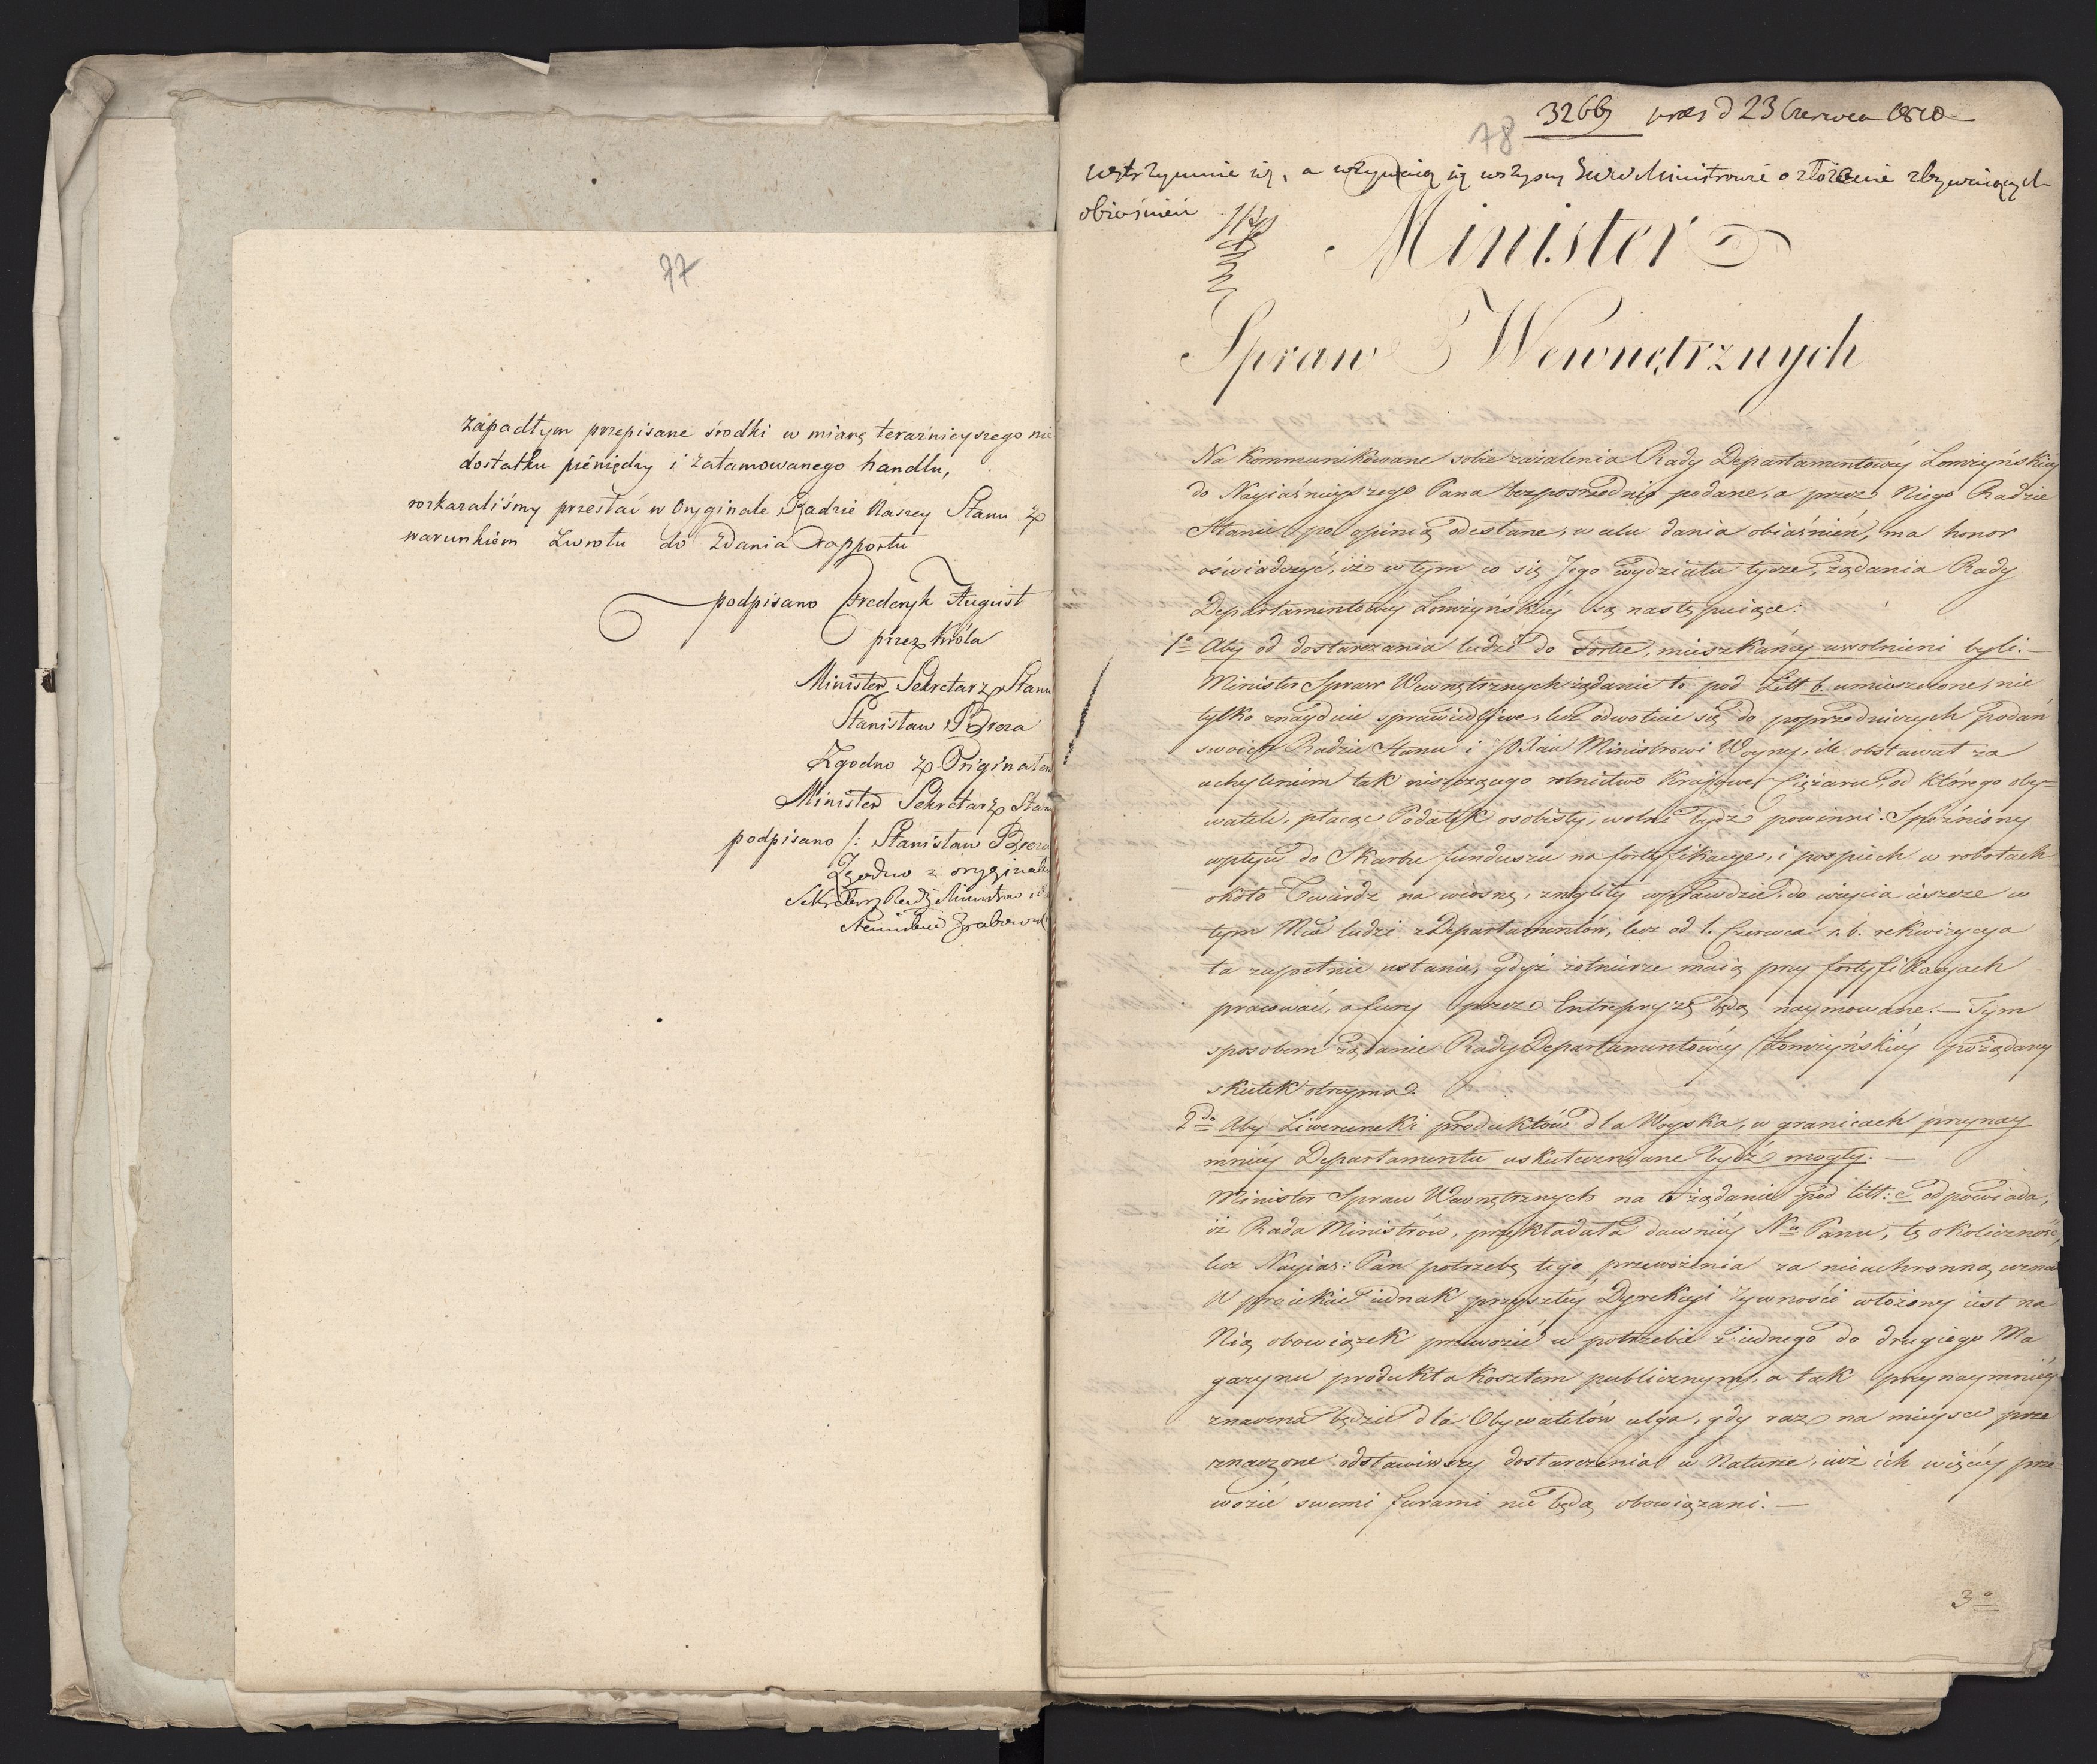 77
zapadłym przepisane środki w miarę teraźnieyszego nie
dostatku pieniędzy i zatamowanego handlu,
rozkazaliśmy przesłać w Oryginale Radzie Naszey Stanu z
warunkiem zwrotu do zdania rapportu
podpisano Frederyk August
przez Króla
Minister Sekretarz Stanu
Stanisław Breza
Zgodno z Originałem
Minister Sekretarz Stanu
podpisano /: Stanisław Breza
Zgodno z oryginałem
Sekretarz Rady Ministrów
Stanisław Grabowski
3266 d 23 Czerwca 1810
78
wstrzymuie się, a wzywaią się wszyscy Ministrowie o złożenie zbywaiących
obiaśnień
Minister
Spraw Wewnętrznych
Na kommunikowane sobie zażalenia Rady Departamentowéy Łomżyńskiey
do Nayiaśnieyszego Pana bezpośrednio podane, a przez Niego Radzie
Stanu po opinią odesłane, w celu dania obiaśnień, ma honor
oświadczyć, iż w tym co się Jego wydziału tycze, żądania Rady
Departamentowéy Łomżyńskiéy są następuiące:
1o Aby od dostarczania ludzi do fortec, mieszkańcy uwolnieni byli. —
Minister Spraw Wewnętrznych żądanie to pod Litt b. umieszczone, nie
tylko znayduie sprawiedliwe, lecz odwołuie się do poprzedniczych podań
swoich Radzie Stanu i JO Xciu Ministrowi Woyny, ile obstawał za
uchyleniem tak niszczącego rolnictwo Kraiowe Ciężaru, od którego oby=
watele, płacąc Podatek osobisty, wolni bydź powinni. Spóźniony
wpływ do Skarbu funduszu na fortyfikacye, i pospiech w robotach
około Twierdz na wiosnę, znagliły wprawdzie do wzięcia ieszcze w
tym ludzi z Departamentów, lecz od 1. Czerwca r. b. rekwizycya
ta zupełnie ustanie, gdyż żołnierze maią przy fortyfikacyach
pracować, a fury przez Entrepryzę będą naymowane. — Tym
sposobem żądanie Rady Departamentowéy Łomżyńskiéy pożądany
skutek otrzyma.
2do Aby Liwerunki produktów dla Woyska, w granicach przynay
mniéy Departamentu uskuteczniane bydź mogły. —
Minister Spraw Wewnętrznych na to żądanie pod litt: c odpowiada,
iż Rada Ministrów, przekładała dawniéy Nu Panu, tę okoliczność,
lecz Nayias: Pan potrzebę tego przewożenia za nieuchronną uznał
W proiekcie iednak przyszłéy Dyrekcyi Żywności włożony iest na
Nią obowiązek przewozić w potrzebie z iednego do drugiego Ma
gazynu produkta kosztem publicznym, a tak przynaymniéy
znaczna będzie dla Obywatelów ulga, gdy raz na mieysce prze
znaczone odstawiwszy dostarczenia w Naturze, iuż ich więcéy prze=
wozić swemi furami nie będą obowiązani. —
3o